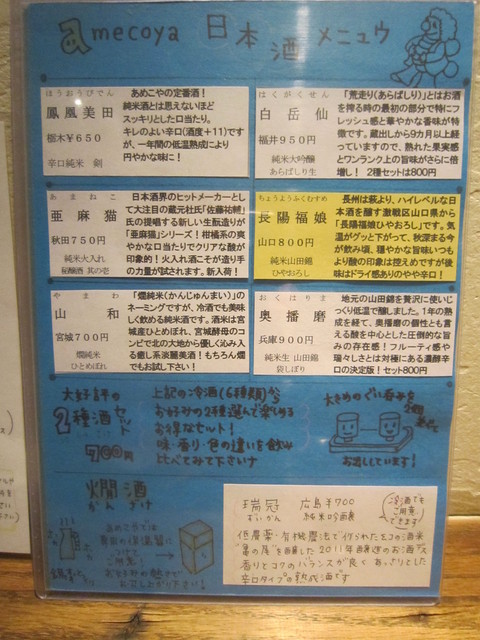 amecoya 日本酒メニュウ
ほうおうびでん
鳳凰美田
栃木￥650
辛口純米 剣
あめこやの定番酒！
純米酒とは思えないほど
スッキリとした口当たり。
キレのよい辛口(酒度＋11)です
が、一年間の低温熟成により
円やかな味に！
はくがくせん
白岳仙
福井950円
純米大吟醸
あらばしり生
「荒走り(あらばしり)」とはお酒
を搾る時の最初の部分で特にフ
レッシュ感と華やかな香味が特
徴です。蔵出しから9カ月以上経
っていますので、熟れた果実感
とワンランク上の旨味がさらに倍
増し！ 2種セットは800円
あまねこ
亜麻猫
秋田750円
純米火入れ
秘醸酒 其の壱
日本酒界のヒットメーカーとし
て大注目の蔵元杜氏「佐藤祐輔」
氏の提唱する新しい生酛造りが
「亜麻猫」シリーズ！柑橘系の爽
やかな口当たりでクリアな酸が
が印象的！火入れ酒こそが造り手
の力量が試されます。新入荷！
ちょうようふくむすめ
長陽福娘
山口800円
純米山田錦
ひやおろし
長州は萩より、ハイレベルな日
本酒を醸す激戦区山口県から
「長陽福娘ひやおろし」です。気
温がグッと下がって、秋深まる今
が飲み頃、穏やかな旨味いつも
より酸の印象は控えめですが後
味はドライ感ありのやや辛口！
やまわ
山和
宮城700円
燗純米
ひとめぼれ
「燗純米(かんじゅんまい)」の
ネーミングですが、冷酒でも美味
しく飲める純米酒です。酒米は宮
城産ひとめぼれ、宮城酵母のコ
ンビで北の大地から優しく沁み入
る癒し系淡麗美酒！もちろん燗
でもお試し下さい！
おくはりま
奥播磨
兵庫900円
純米生 山田錦
袋しぼり
地元の山田錦を贅沢に使いじ
っくり低温で醸しました。1年の熟
成を経て、奥播磨の個性とも言
える酸を中心とした圧倒的な旨
みの存在感！フルーティ感や
瑞々しさとは対極にある濃醇辛
口の決定版！セット800円
大好評の
2種酒セット
700円
上記の冷酒(6種類)から
お好みの2種選んで楽しめる
お得なセット！
味・香り・色の違いを飲み
比べてみて下さいナ
大きめのぐい呑みを
2個並べて
お出ししています！
燗酒
かんざけ
あめこやでは
専用の保温器に
つけて
ご用意
お好みの熱さで
お召し上がり下さい！
瑞冠
ずいかん
広島￥700
純米吟醸
冷酒でも
ご用意
できます！
低農薬・有機農法で作られたエコの酒米
"亀の尾"を使用した2011年醸造のお酒"ス
香りとコクのバランスが良く あっさりとした
辛口タイプの熟成酒です